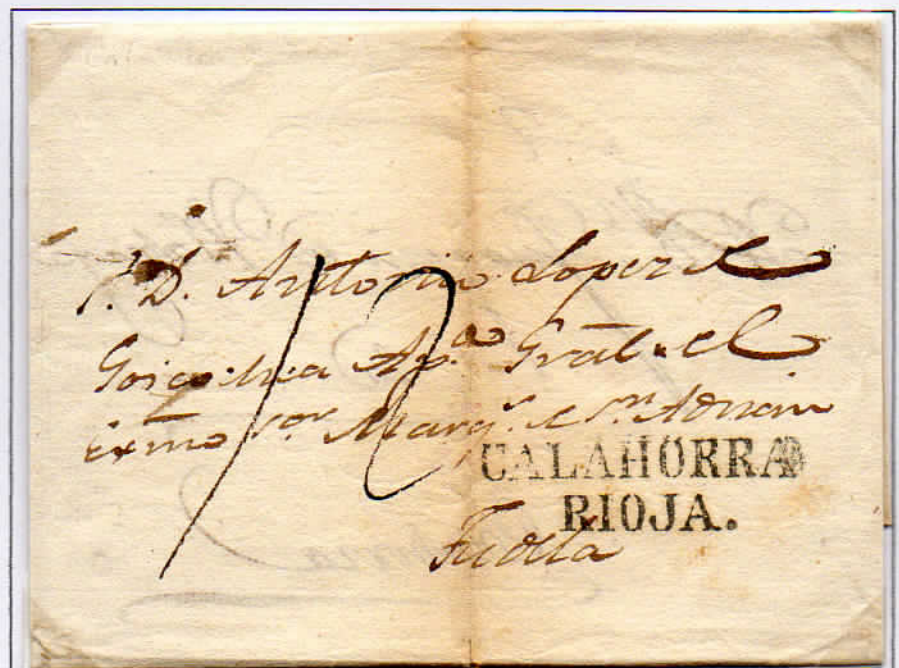 S. D. Antonio Lopez de
Goicochea Ap.ª Gral. del
Exmo Sor. Marqs. de Sn. Adrian
12
CALAHORRA
RIOJA.
Tudela